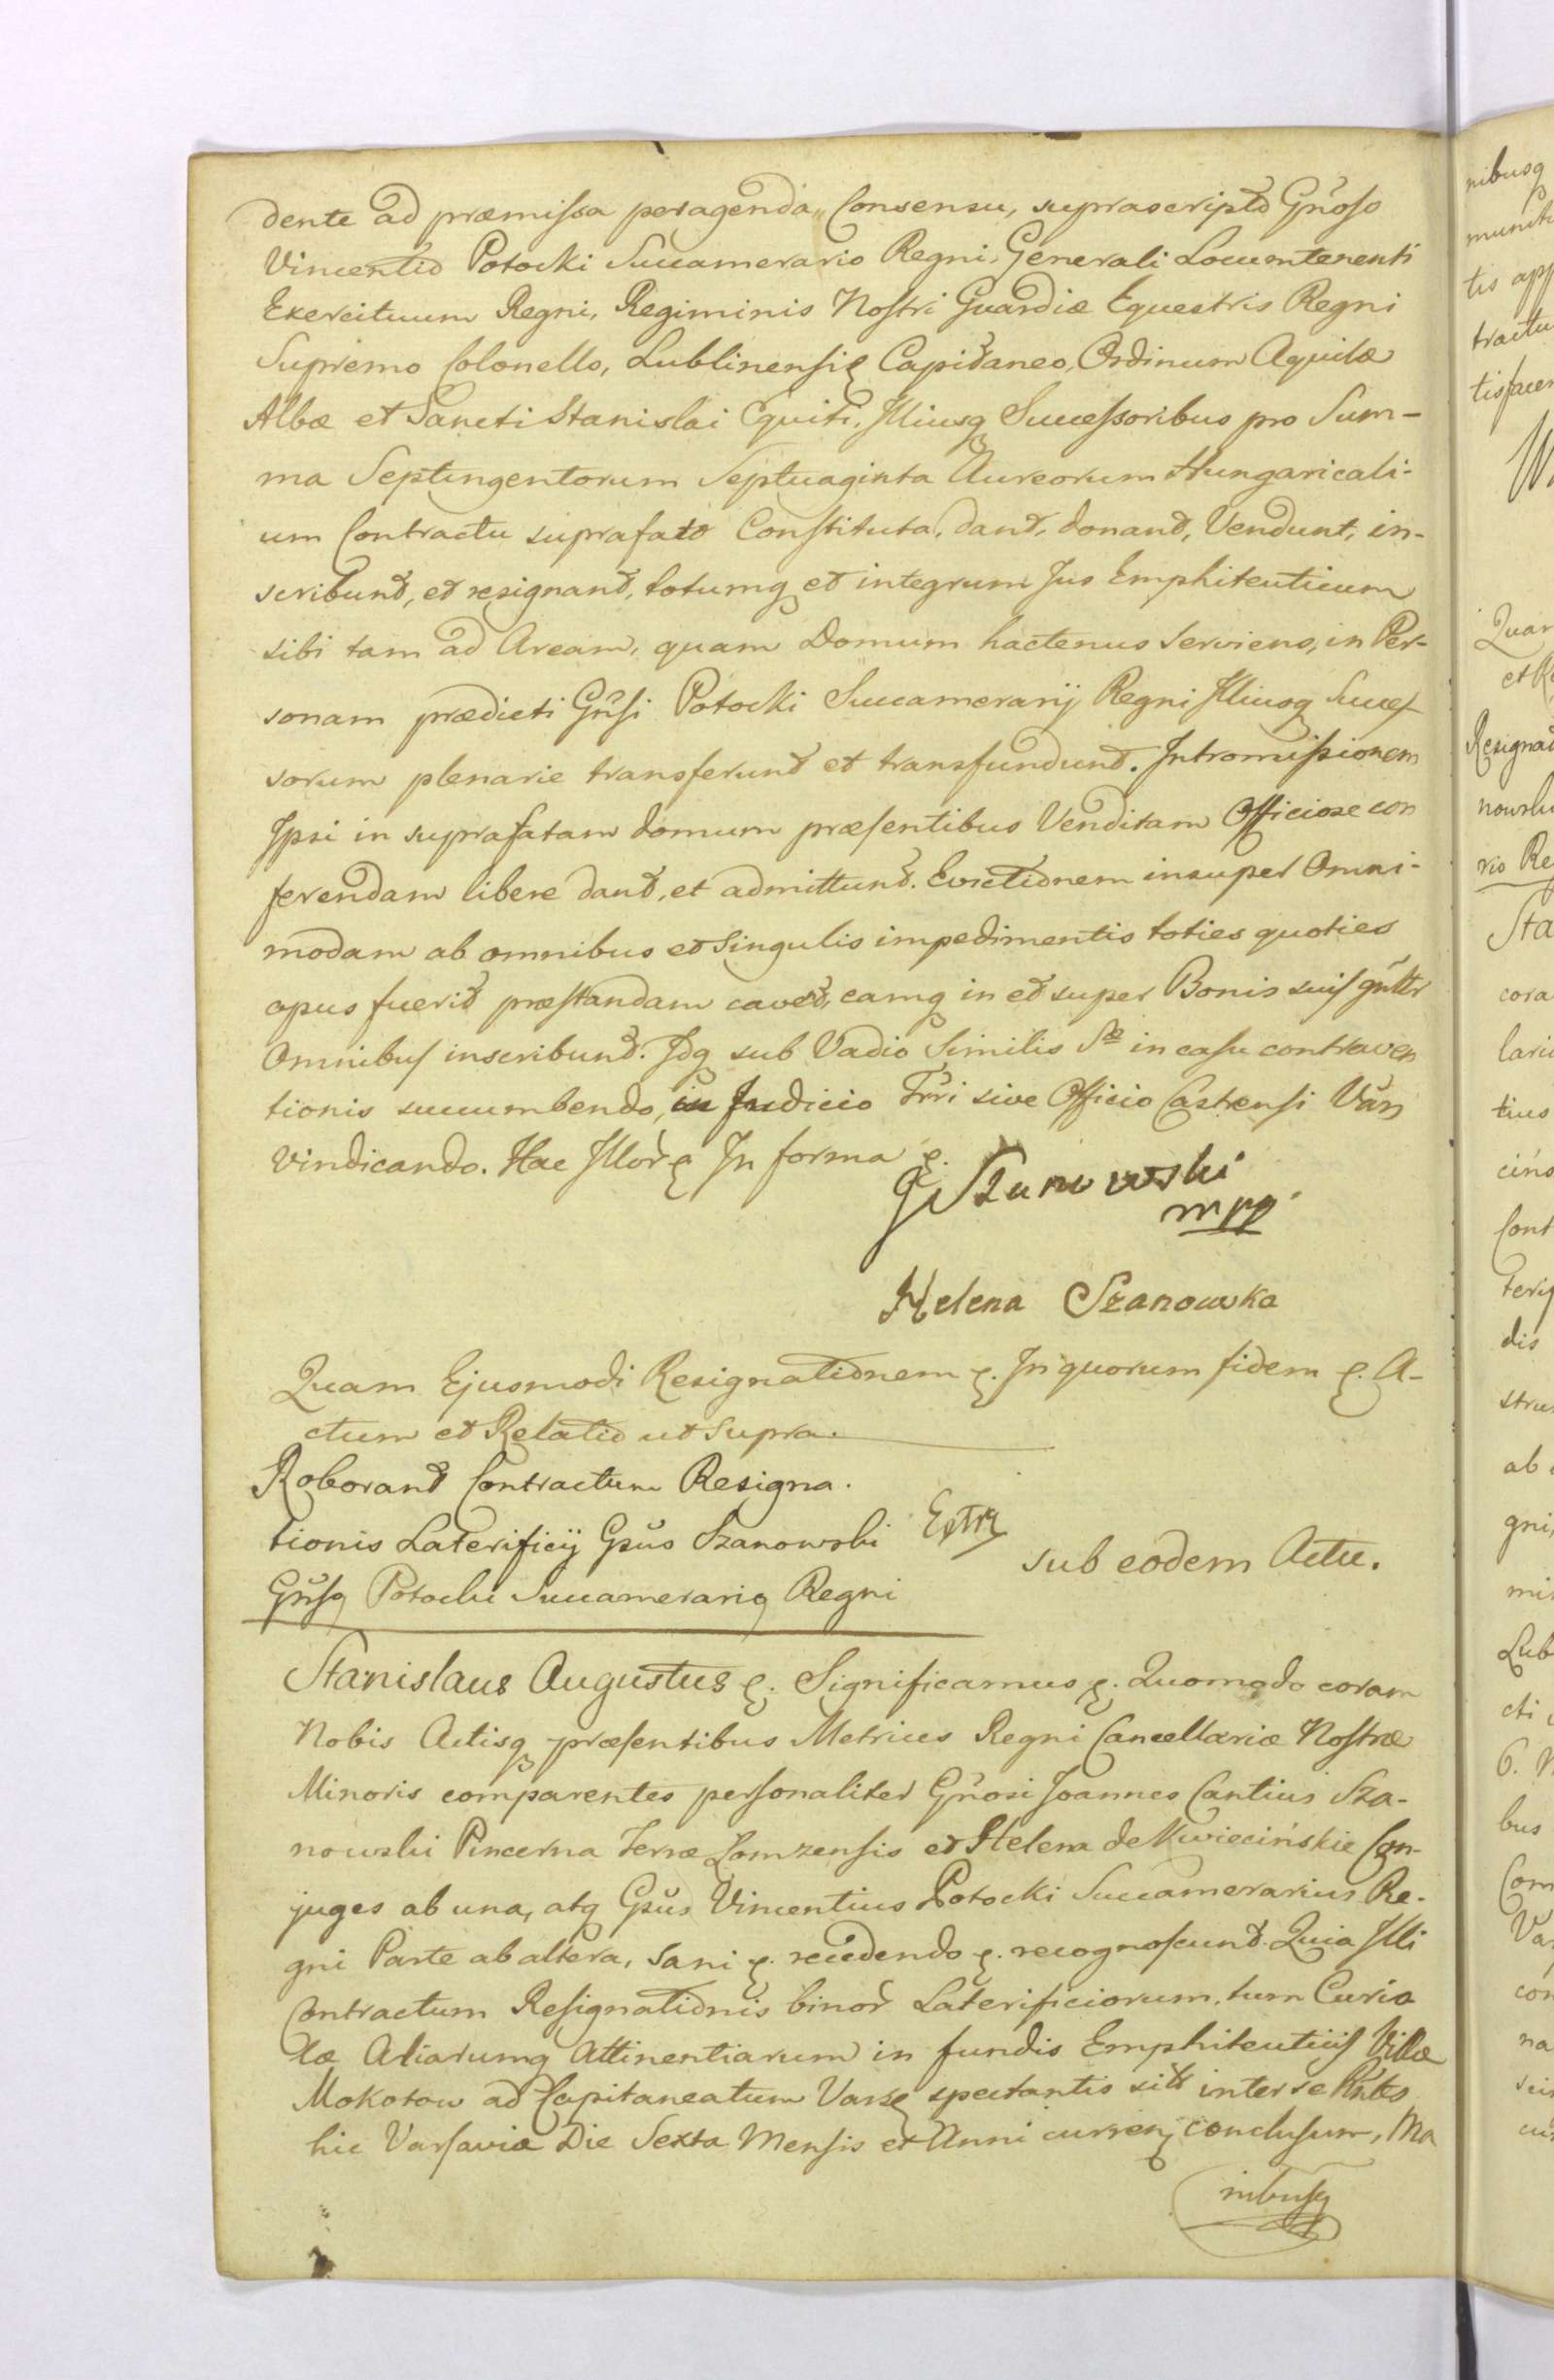 dente ad præmissa peragenda, Consensu, suprascripto Gnoso
Vincentio Potocki Succamerario Regni, Generali Locumtenenti
Exercituum Regni, Regiminis Nostri Guardiæ Equestris Regni
Supremo Colonello, Lublinensi Capitaneo, Ordinum Aquilæ
Albæ et Sancti Stanislai Equiti, Illiusq Successoribus pro Sum-
ma Septingentorum Septuaginta Aureorum Hungaricali-
um Contractu suprafato Constituta, dant, donant, Vendunt, in-
scribunt, et resignant, totumq et integrum Jus Emphiteuticum
sibi tam ad Aream, quam Domum hactenus serviens, in Per-
sonam prædicti Gnsi Potocki Succamerarij Regni Illiusq Succes
sorum plenarie transferunt et transfundunt. Intromissionem
Ipsi in suprafatam domum præsentibus Venditam Officiose con
ferendam libere dant, et admittunt. Evictionem insuper Omni-
modam ab omnibus et singulis impedimentis toties quoties
opus fuerit præstandam cavent, eamq in et super Bonis suis gnltr
Omnibus inscribunt. Idq sub Vadio Similis Sæ in casu contraven
tionis succumbendo, in Judicio Trri sive Officio Castrensi Vars
vindicando. Hac Illor In forma
J Szanowski
mpp
Helena Szanowska
Quam Ejusmodi Resignationem In quorum fidem A-
ctum et Relatio ut supra.
Roborant Contractum Resigna.
tionis Laterificij Gsus Szanowski
Gnso Potocki Succamerario Regni
Extr
sub eodem Actu.
Stanislaus Augustus Significamus Quomodo coram
Nobis Actisq præsentibus Metrices Regni Cancellariæ Nostræ
Minoris comparentes personaliter Gnosi Joannes Cantius Sza-
nowski Pincerna Terræ Łomzensis et Helena de Kwiecińskie Con-
juges ab una, atq Gsus Vincentius Potocki Succamerarius Re-
gni Parte ab altera, sani recedendo recognoscunt Quia Illi
Contractum Resignationis binor Laterificiorum, tum Curio
læ Aliarumq Attinentiarum in fundis Emphiteuticis Villæ
Mokotow ad Capitaneatum Vars spectantis sitr inter se Pntes
hic Varsaviæ Die Sexta Mensis et Anni curren conclusum, Ma
nibusq
nibusq
tis app
tractu
Quar
Resigna
Sta
cora
tius
Cont
dis
ab
gni,
Lub
bus
Com
na